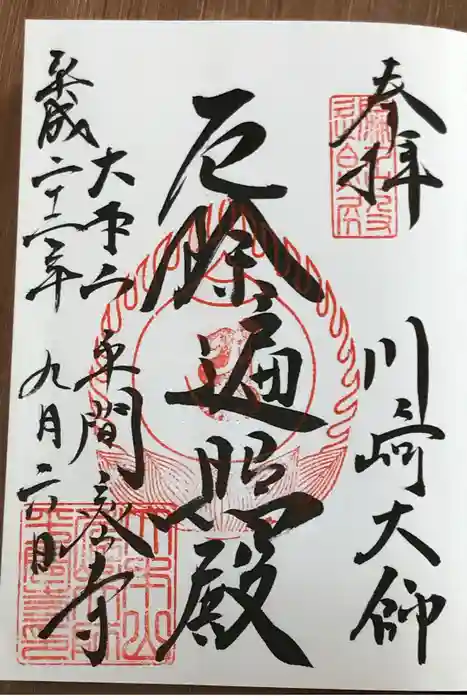 奉拝
川崎大師
厄除遍照殿
大本山
平間寺
平成二十三年九月六日